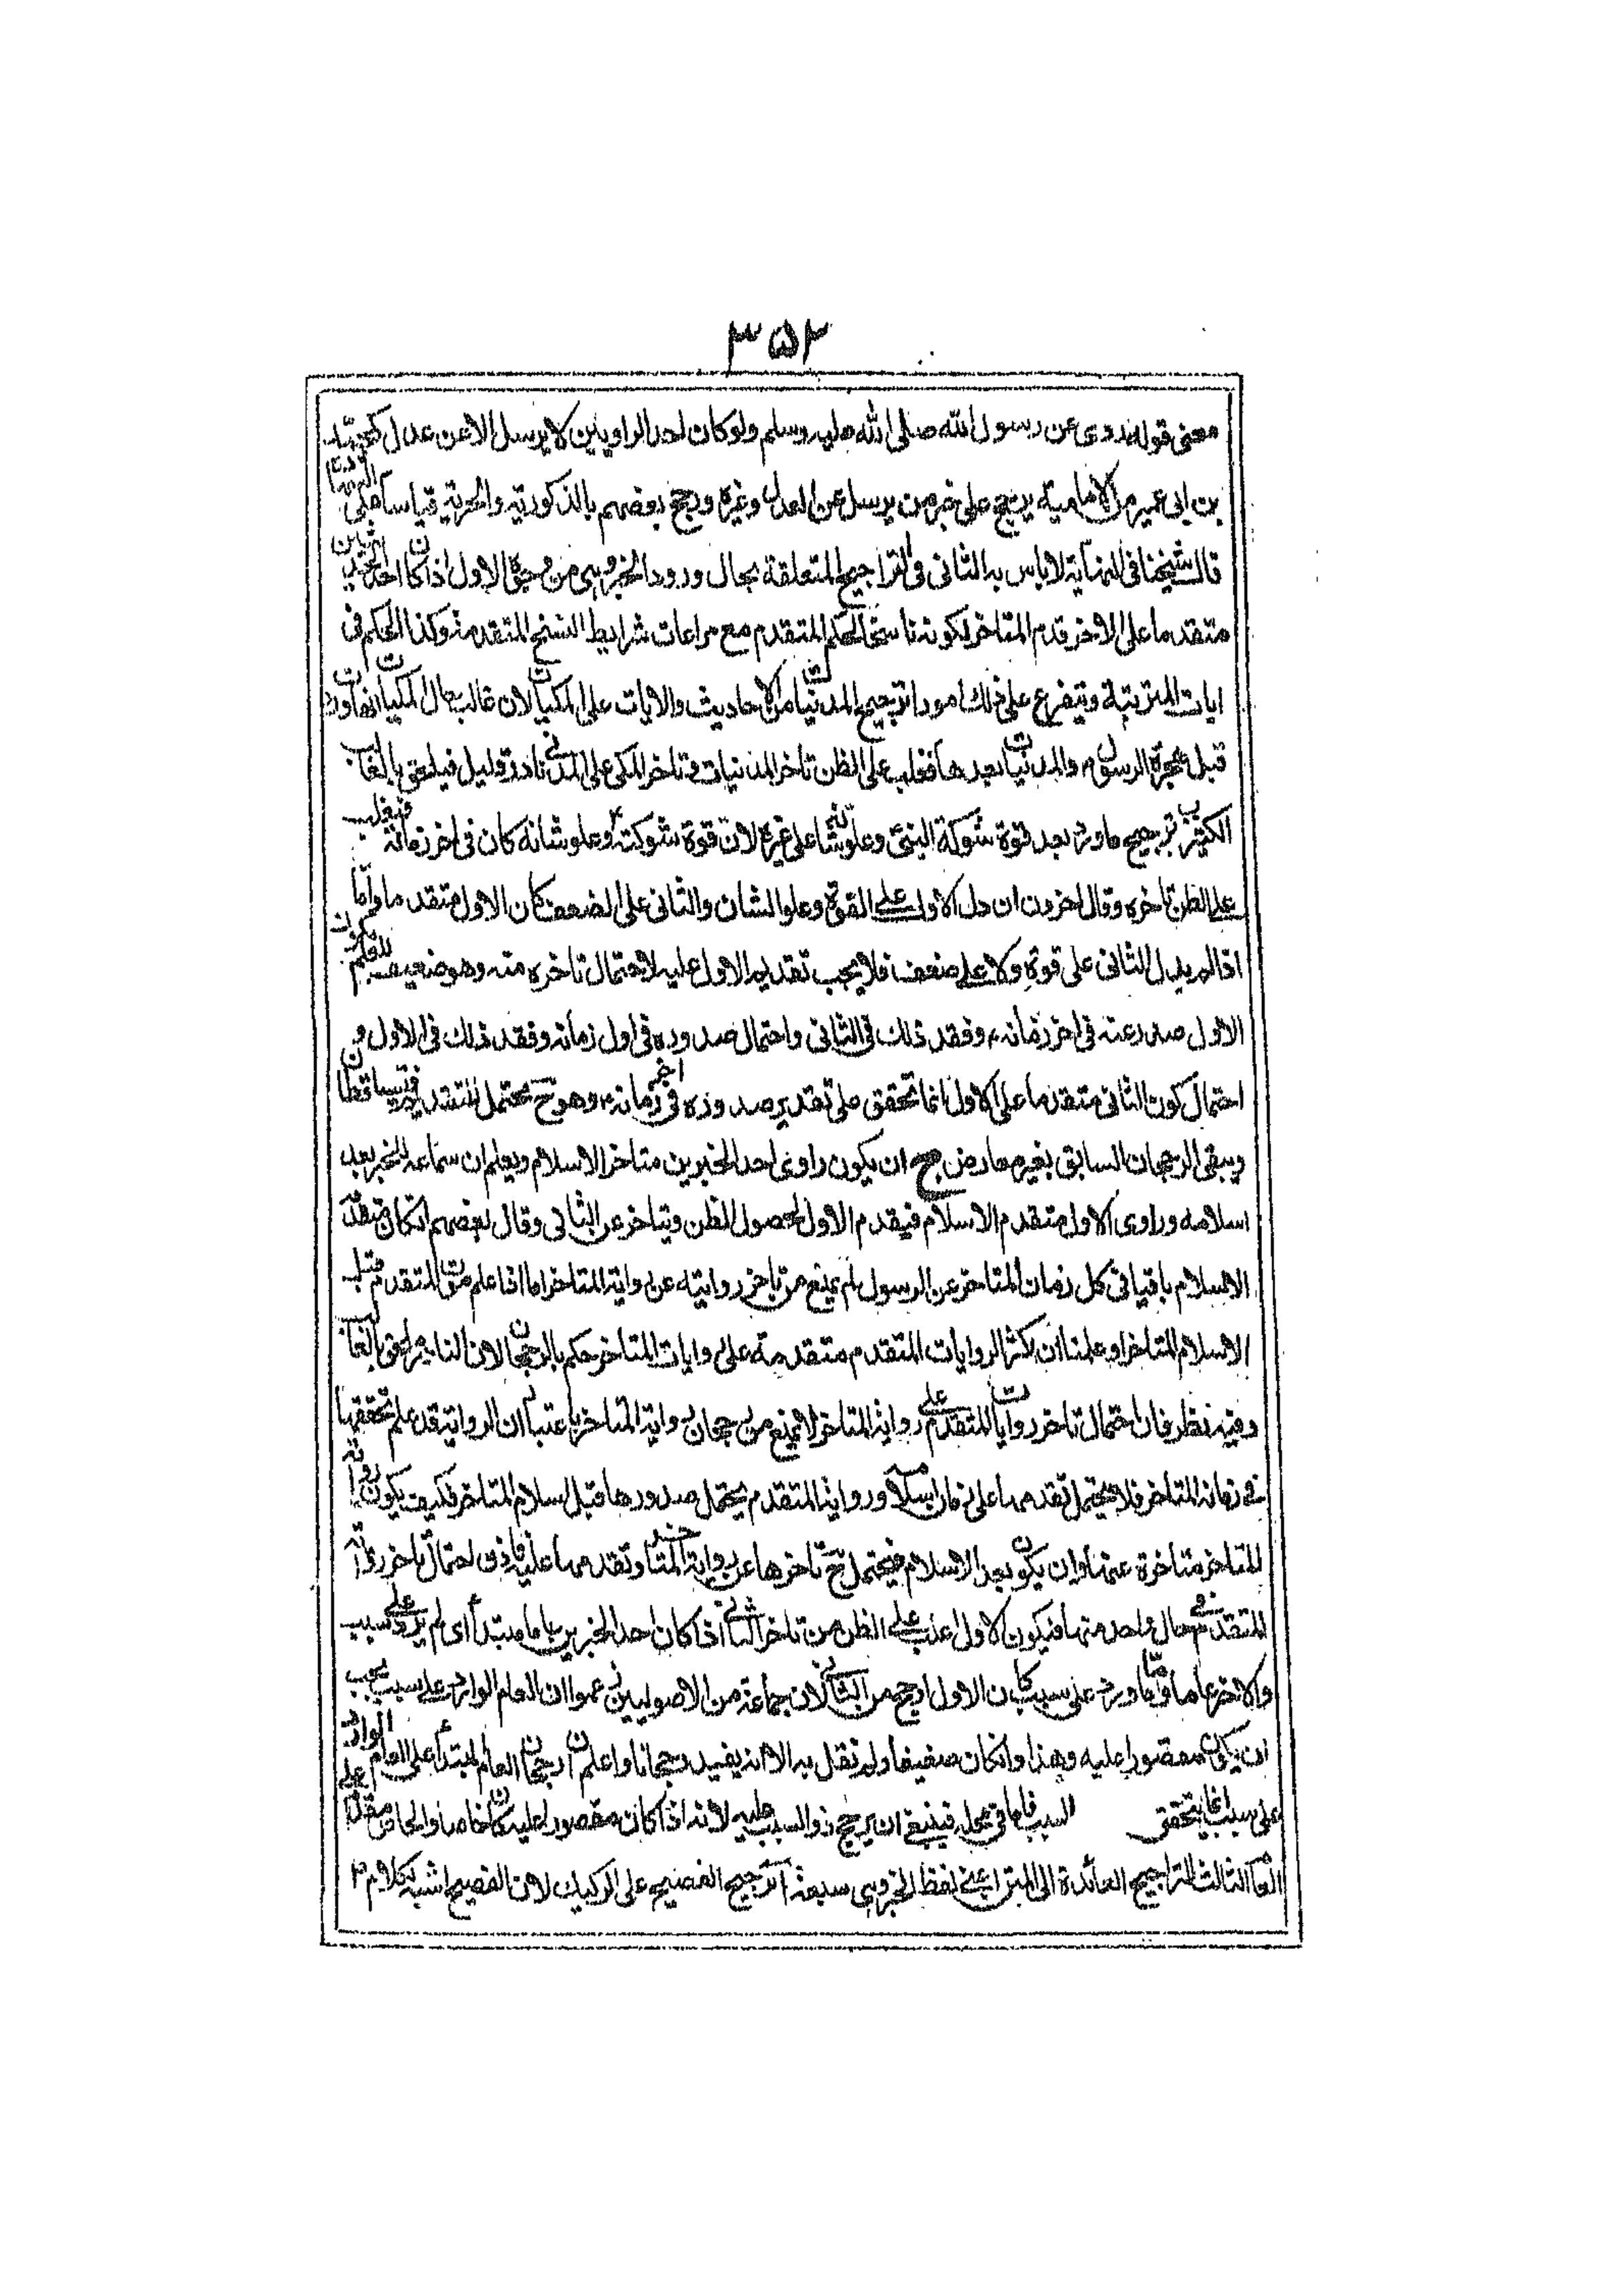 ۳۵۲
معنى قوله روى عن رسول الله صلى الله عليه وسلم ولو كان احد الراويين لا يرسل الا عن عدل كمحمد
بن ابى عمير من الامامية يرجح على خبر من يرسل عن العدل وغيره ورجح بعضهم بالذكورية والحرية قياسا على الشهادة
قال شيخنا فى النهاية لا باس به الثانى فى التراجيح المتعلقة بحال ورود الخبر وهى من وجوه الاول اذا كان احد الخبرين
متقدما على الاخر قدم المتاخر لكونه ناسخا لحكم المتقدم مع مراعات شرايط النسخ المتقدمة وكذا الحكم فى
ايات المترتبة ويتفرع على ذلك امور ا ترجيح المدنيات من الاحاديث والايات على المكيات لان غالب حال المكيات انها وردت
قبل هجرة الرسول م والمدنيات بعدها فغلب على الظن تاخر المدنيات وتاخر المكى على المدنى نادر قليل فيلحق بالغالب
الكثير ب ترجيح ما ورد بعد قوة شوكة النبى وعلو شانه على غيره لان قوة شوكته م وعلو شانه كان فى اخر زمانه فيغلب
على الظن تاخره وقال اخرون ان دل الاول على القوة وعلو الشان والثانى على الضعف كان الاول متقدما واما
اذا لم يدل الثانى على قوة ولا على ضعف فلا يجب تقديم الاول عليه لاحتمال تاخره منه وهو ضعيف للعلم بكون
الاول صدر عنه فى اخر زمانه م وفقد ذلك فى الثانى واحتمال صدوره فى اول زمانه وفقد ذلك فى الاول و
احتمال كون الثانى متقدما على الاول انما تحقق على تقدير صدوره فى اخر زمانه م وهو ح محتمل للتقدير فيتساقطان
ويبقى الرجحان السابق بغير معارض ج ان يكون راوى احد الخبرين متاخر الاسلام ويعلم ان سماعه للخبر بعد
اسلامه وراوى الاول متقدم الاسلام فيقدم الاول لحصول الظن وتباخر عن الثانى وقال بعضهم ان كان متقدم
الاسلام باقيا فى كل زمان المتاخر عن الرسول لم يمنع من تاخر روايته عن رواية المتاخر اما اذا علم موت المتقدم قبل
الاسلام المتاخر او علمنا ان اكثر الروايات المتقدم متقدمة على روايات المتاخر حكم بالرجحان لان النادر ملحق بالغالب
وفيه نظر فان احتمال تاخر روايات المتقدم على رواية المتاخر لا يمنع من رجحان رواية المتاخر باعتبار ان الرواية قد علم تحققها
فى زمانه المتاخر فلا يحتمل تقدمها على زمان اسلامه ورواية المتقدم يحتمل صدورها قبل اسلام المتاخر فكيف يكون رواية
المتاخر متاخرة عنها وان يكون بعد الاسلام فيحتمل ح تاخرها عن رواية المتاخر وتقدمها عليها فاذن احتمال تاخر رواية
المتقدم فى حال واحد منها فيكون الاول اغلب على الظن من تاخر الثانى اذا كان احد الخبرين عاما مبتدأ اى لم يرد على سبب
والاخر عاما واما ورد على سبب كان الاول ارجح من الثانى لان جماعة من الاصوليين زعموا ان العام الوارد على سبب يجب
ان يكون مقصورا عليه وهذا وان كان ضعيفا ولم نقل به الا انه يفيد رجحانا واعلم ان رجحان العام المبتدأ على العام الوارد
على سبب انما يتحقق السبب فاما فى محله فينبغى ان يرجح ذو السبب عليه لانه اذا كان مقصورا عليه كان خاصا والخاص مقدم على
العام الثالث التراجيح العائدة الى المتن اعنى لفظ الخبر وهى سبعة ا ترجيح الفصيح على الركيك لان الفصيح اشبه بكلام م